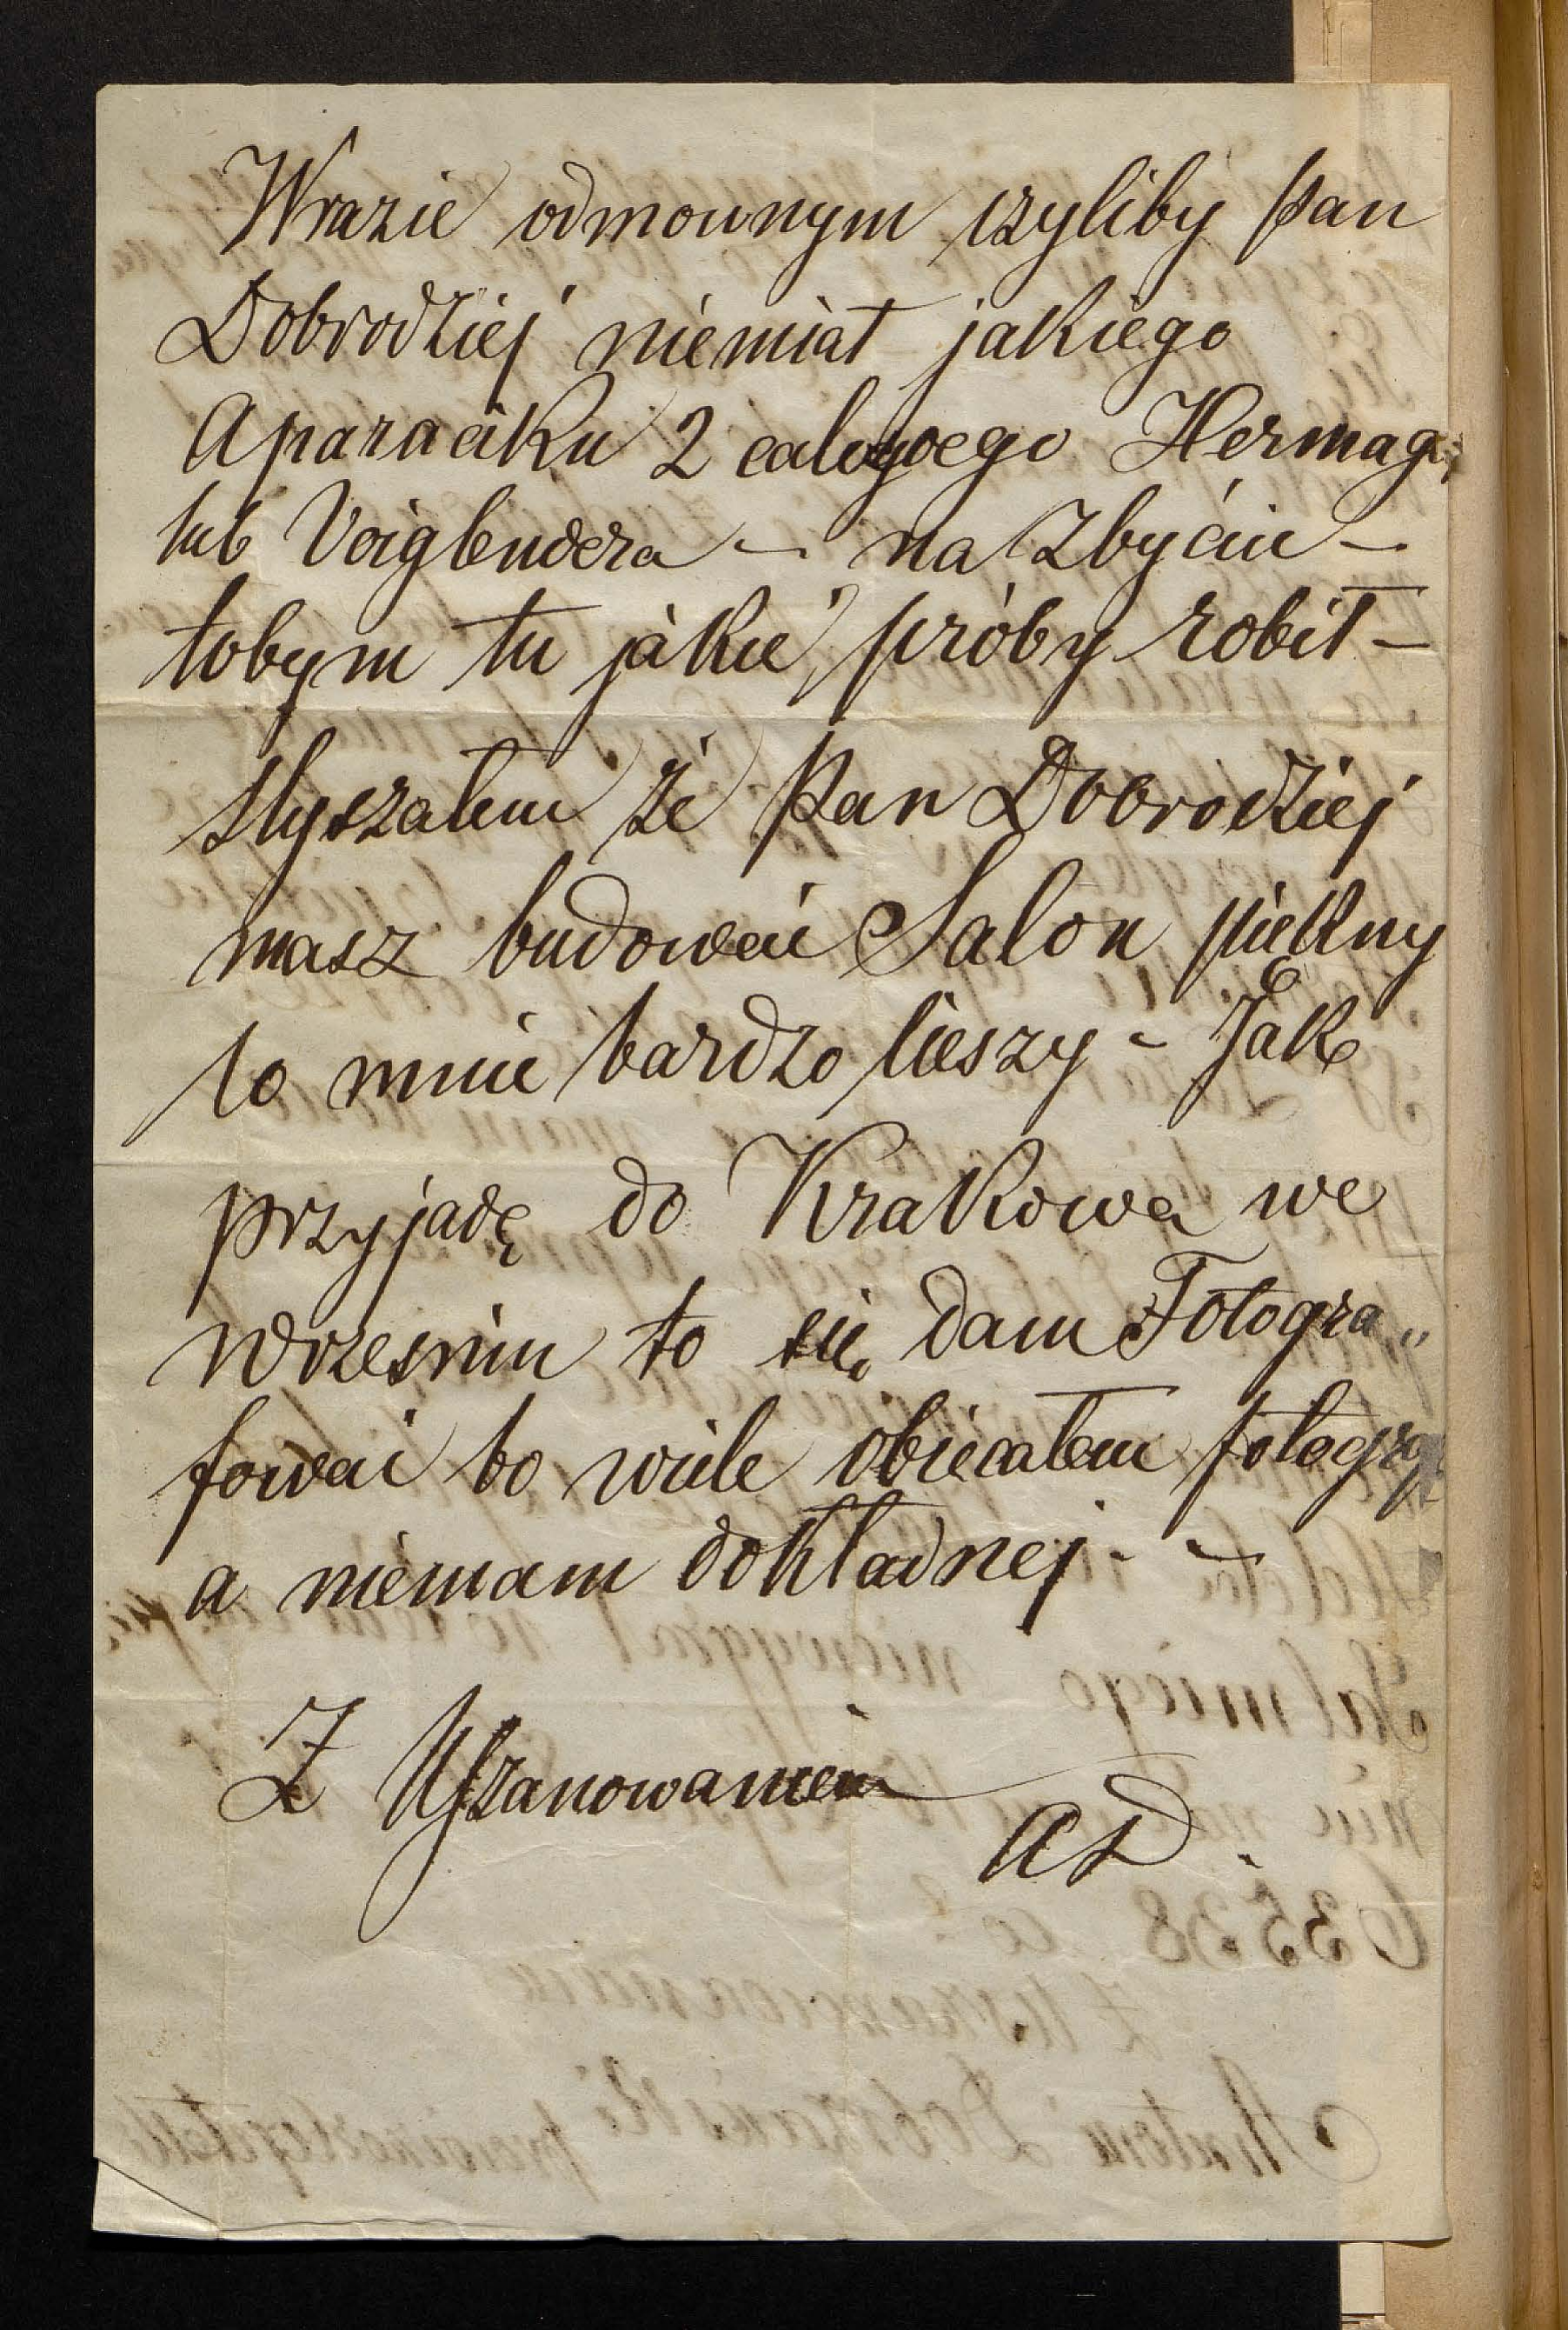 Wrazie odmownym czyliby Pan
Dobrodziej niemiał jakiego
Aparaciku 2 calowego Hermag,
lub Voiglendera — na zbyciu —
tobym tu jakie próby robił —
słyszałem że Pan Dobrodziej
masz budować Salon piękny
to mnie bardzo cieszy - Jak
przyjadę do Krakowa we
Wrzesniu to się dam Fotogra„
fować bo wiele obiecałem
a niemam dokładnej - —
Z Uszanowaniem
AD.